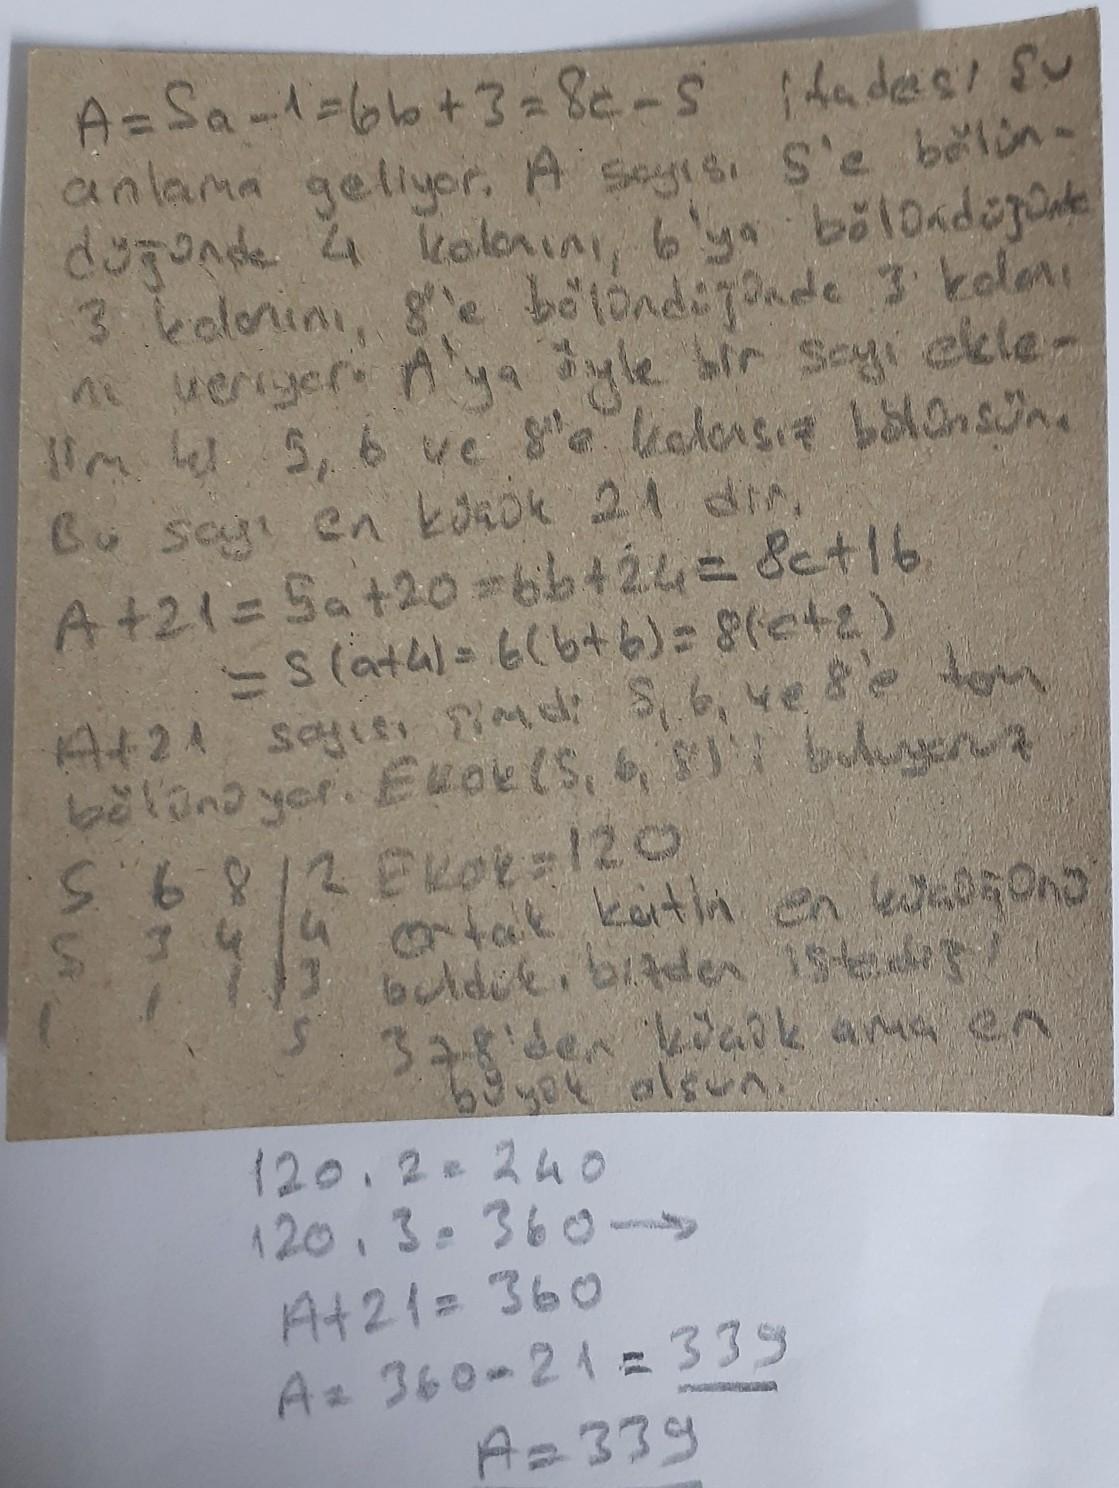 A = 5a - 1 = 6b + 3 = 8c - 5 ifadesi şu
anlama geliyor. A sayısı 5'e bölün-
düğünde 4 kalanını, 6'ya bölündüğünde
3 kalanını, 8'e bölündüğünde 3 kalanı
nı veriyor. A'ya öyle bir sayı ekle-
lim ki 5, 6 ve 8'e kalansız bölünsün.
Bu sayı en küçük 21 dir.
A + 21 = 5a + 20 = 6b + 24 = 8c + 16
= 5(a+4) = 6(b+6) = 8(c+2)
A+21 sayısı şimdi 5, 6, ve 8'e tam
bölünüyor. Ekok(5, 6, 8)'i buluyoruz
5 6 8 | 2 Ekok = 120
5 3 4 | 4 ortak katın en küçüğünü
1 1 1 | 3 bulduk. bizden istediği
5 378'den küçük ama en
büyük olsun.
120 . 2 = 240
120 . 3 = 360 →
A+21 = 360
A = 360 - 21 = 339
A = 339